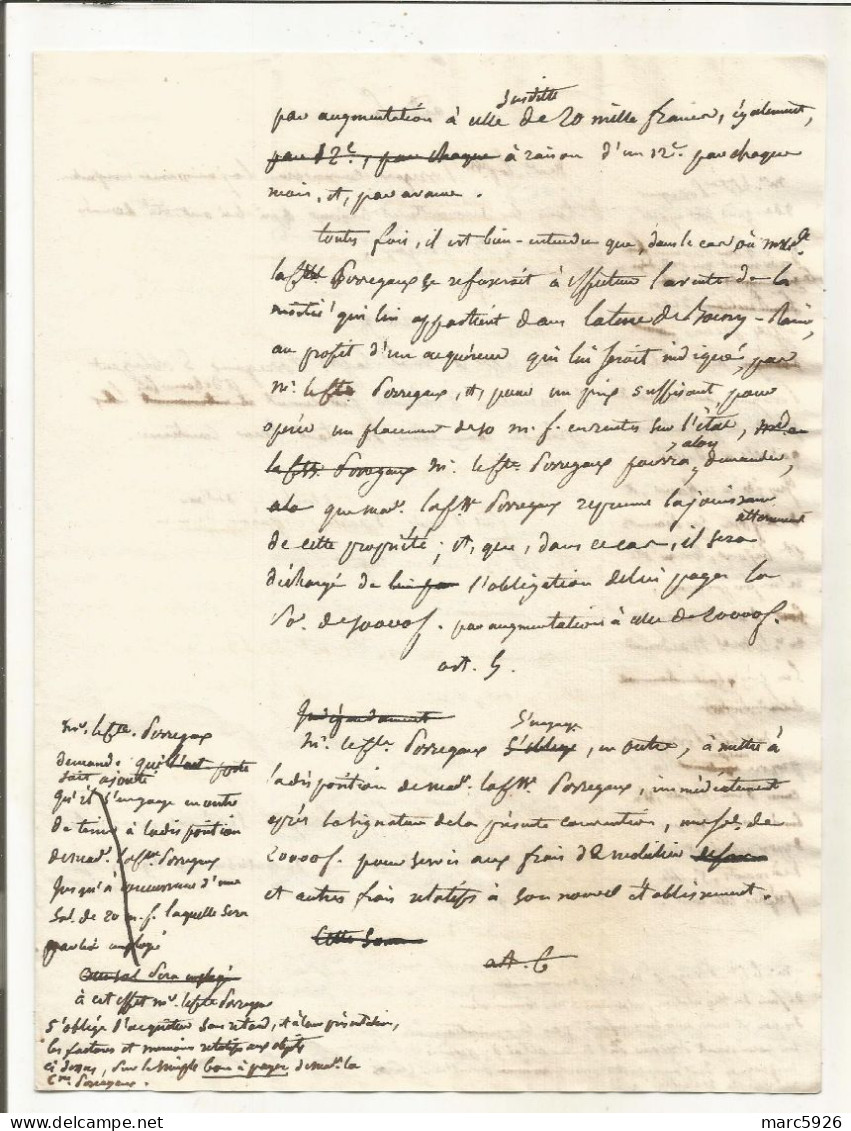 susditte
par augmentation à celle de 20 mille francs, également,
par 12e, par chaque à raison d'un 12e. par chaque
mois, et, par avance.
toutes fois, il est bien-entendu que, dans le cas où
la Perregaux se refuserait à effectuer la vente de la
moitié qui lui appartient dans la terre de
au profit d'un acquéreur qui lui serait indiqué, par
mr. le Cte Perregaux, et, pour un prix suffisant, pour
opérer un placement de 10 m. f. en rentes sur l'état,
alors
mr. le Cte Perregaux pourra, demander,
à ce que mad. la Csse Perregaux reprenne la jouissance
de cette propriété; et, que, dans ce cas, il sera
déchargé de l'obligation de lui payer la
So. de 10000f. par augmentation à celle de 20000f.
art. 5.
Indépendamment
s'engage
Mr. le Cte Perregaux s'oblige, en outre, à mettre à
la disposition de mad. la Csse Perregaux, immédiatement
après la signature de la présente convention, une so. de
20000f. pour servir aux frais de mobilier
et autres frais relatifs à son nouvel établissement.
Cette Somme
art. 6
mr. le Cte. Perregaux
demande qu'il
soit ajouté
qu'il s'engage en outre
de tenir à la disposition
de mad. la Csse Perregaux
jusqu'à concurrence d'une
so. de 20 m. f. laquelle sera
employé
sera employé
à cet effet mr. le Cte Perregaux
s'oblige d'acquitter sans retard, et à leur présentation,
les factures et mémoires relatifs aux objets
ci dessus, sur le simple bon à payer de mad. la
Csse Perregaux.
marc5926